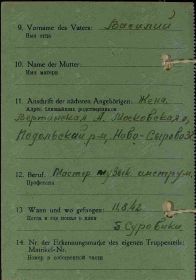 9. Vorname des Vaters: Василий
Имя отца
10. Name der Mutter:
Имя матери
11. Anschrift der nächsten Angehörigen: Жена
Адрес ближайших родственников
Вертинская А. Московская о.
Подольский р-н, Ново-Сыровск
12. Beruf: Мастер музык. инструм.
Профессия
13. Wann und wo gefangen: 11.8.42
Когда и где попал в плен
Суровики
14. Nr. der Erkennungsmarke des eigenen Truppenteils:
Matrikel-Nr.
Номер в собственной части